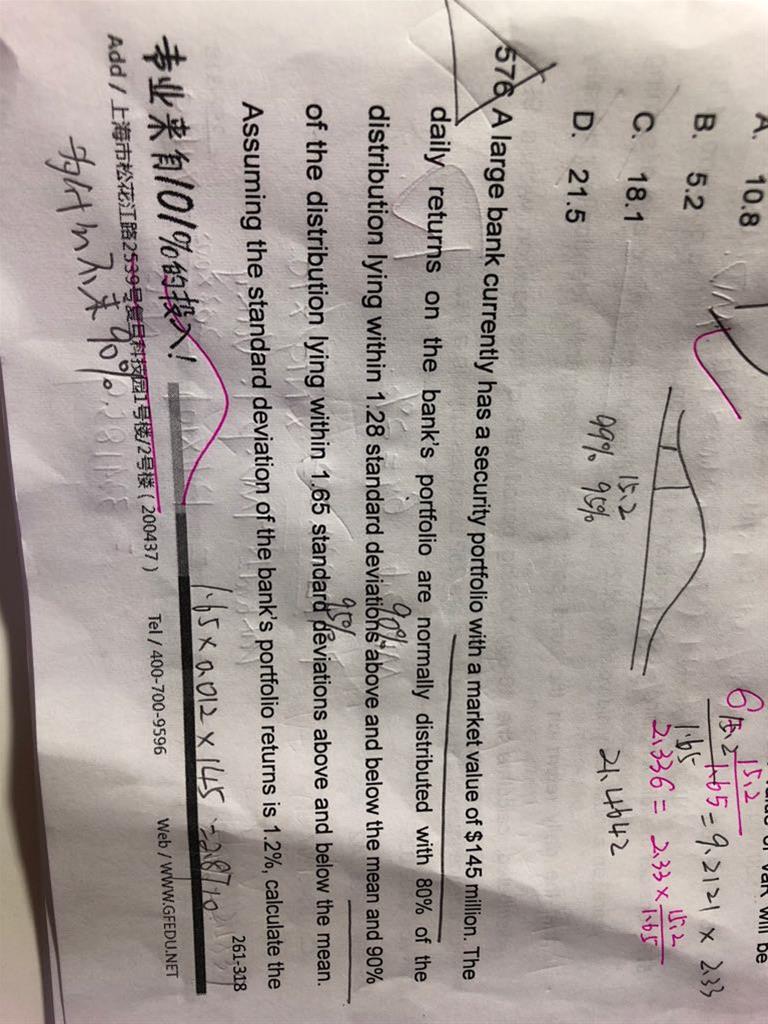 A. 10.8
B. 5.2
C. 18.1
D. 21.5
value of VaR will be
15.2
99% 95%
15.2
1.65
= 9.2121 × 2.33
2.33σ = 2.33 × 15.2
1.65
21.4642
576 A large bank currently has a security portfolio with a market value of $145 million. The
daily returns on the bank's portfolio are normally distributed with 80% of the
distribution lying within 1.28 standard deviations above and below the mean and 90%
90%
of the distribution lying within 1.65 standard deviations above and below the mean.
95%
Assuming the standard deviation of the bank's portfolio returns is 1.2%, calculate the
261-318
1.65 × 0.012 × 145 = 2.871
专业来自101%的投入!
Add / 上海市松花江路2539号复旦科技园1号楼/2号楼 ( 200437 ) Tel / 400-700-9596 Web / WWW.GFEDU.NET
90%